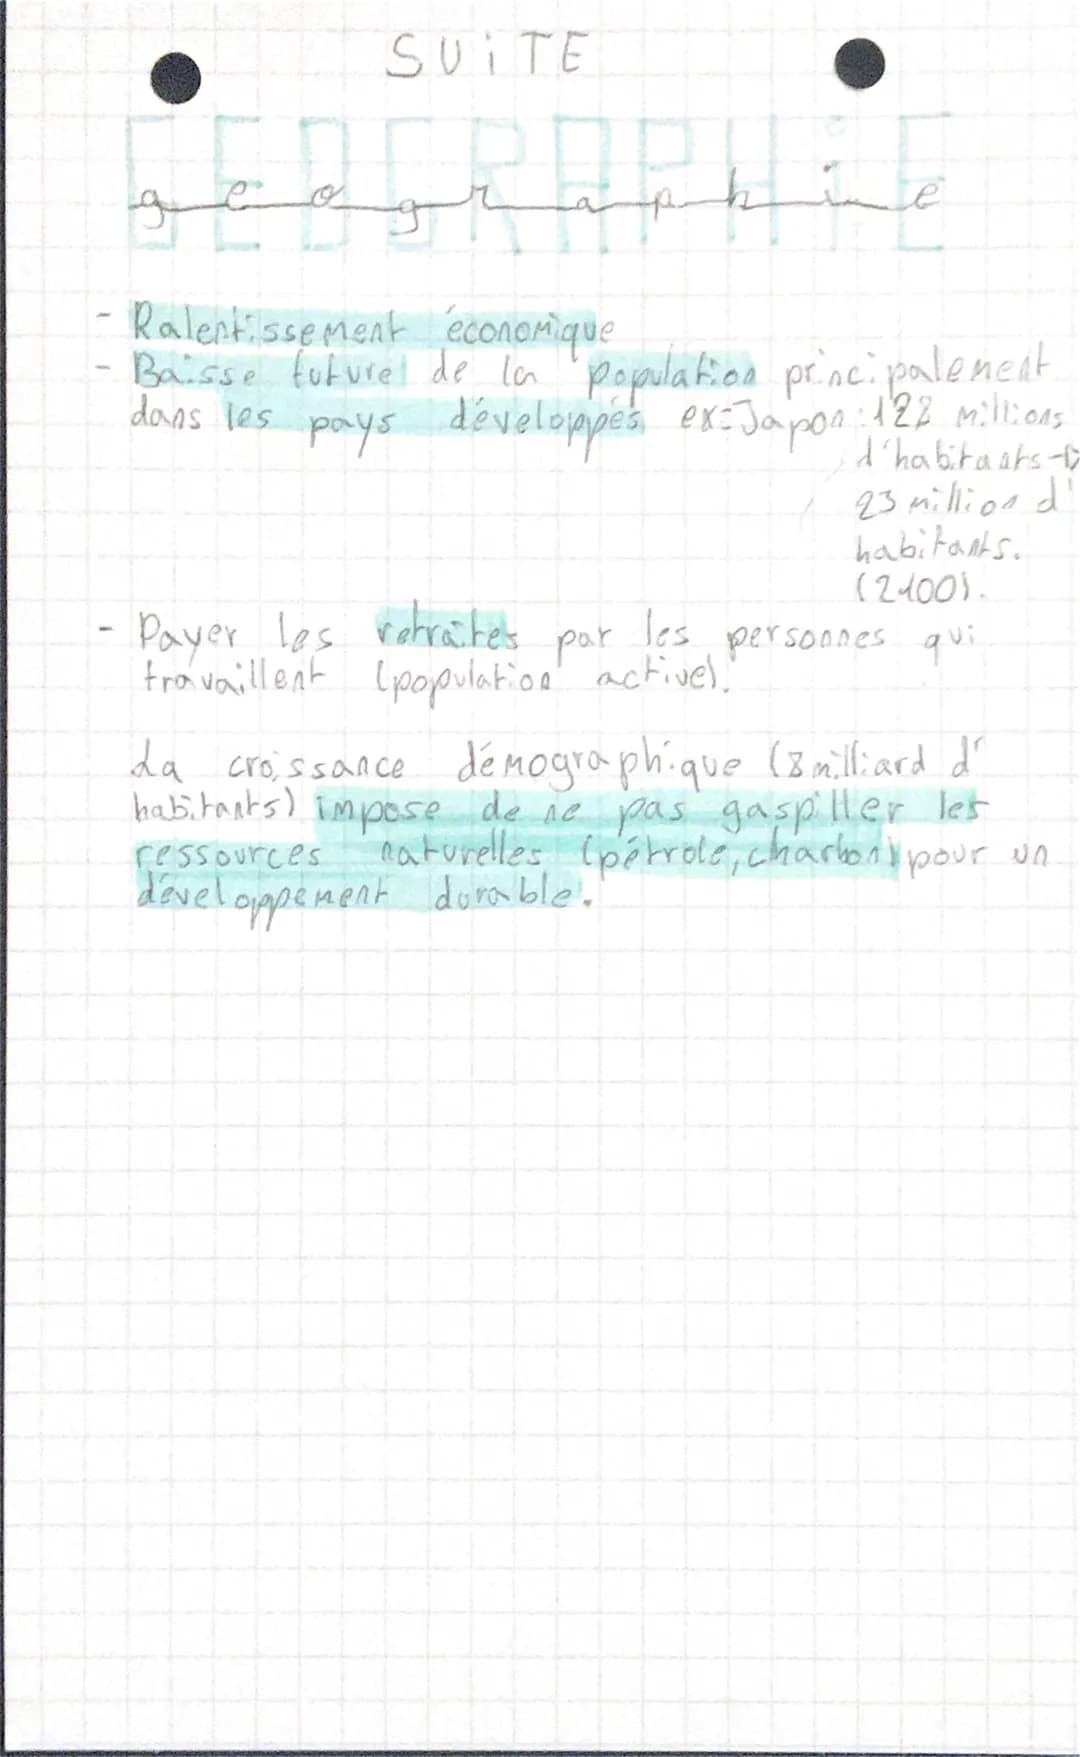 SUiTE
GEOGRAPHiE
geographie
- Ralentissement économique
- Baisse future de la population principalement
dans les pays développés ex=Japon:128 millions
d'habitants→
23 million d'
habitants.
(2100).
- Payer les retraites par les personnes qui
travaillent (population active).
La croissance démographique (8milliard d'
habitants) impose de ne pas gaspiller les
ressources naturelles (pétrole, charbon) pour un
développement durable.